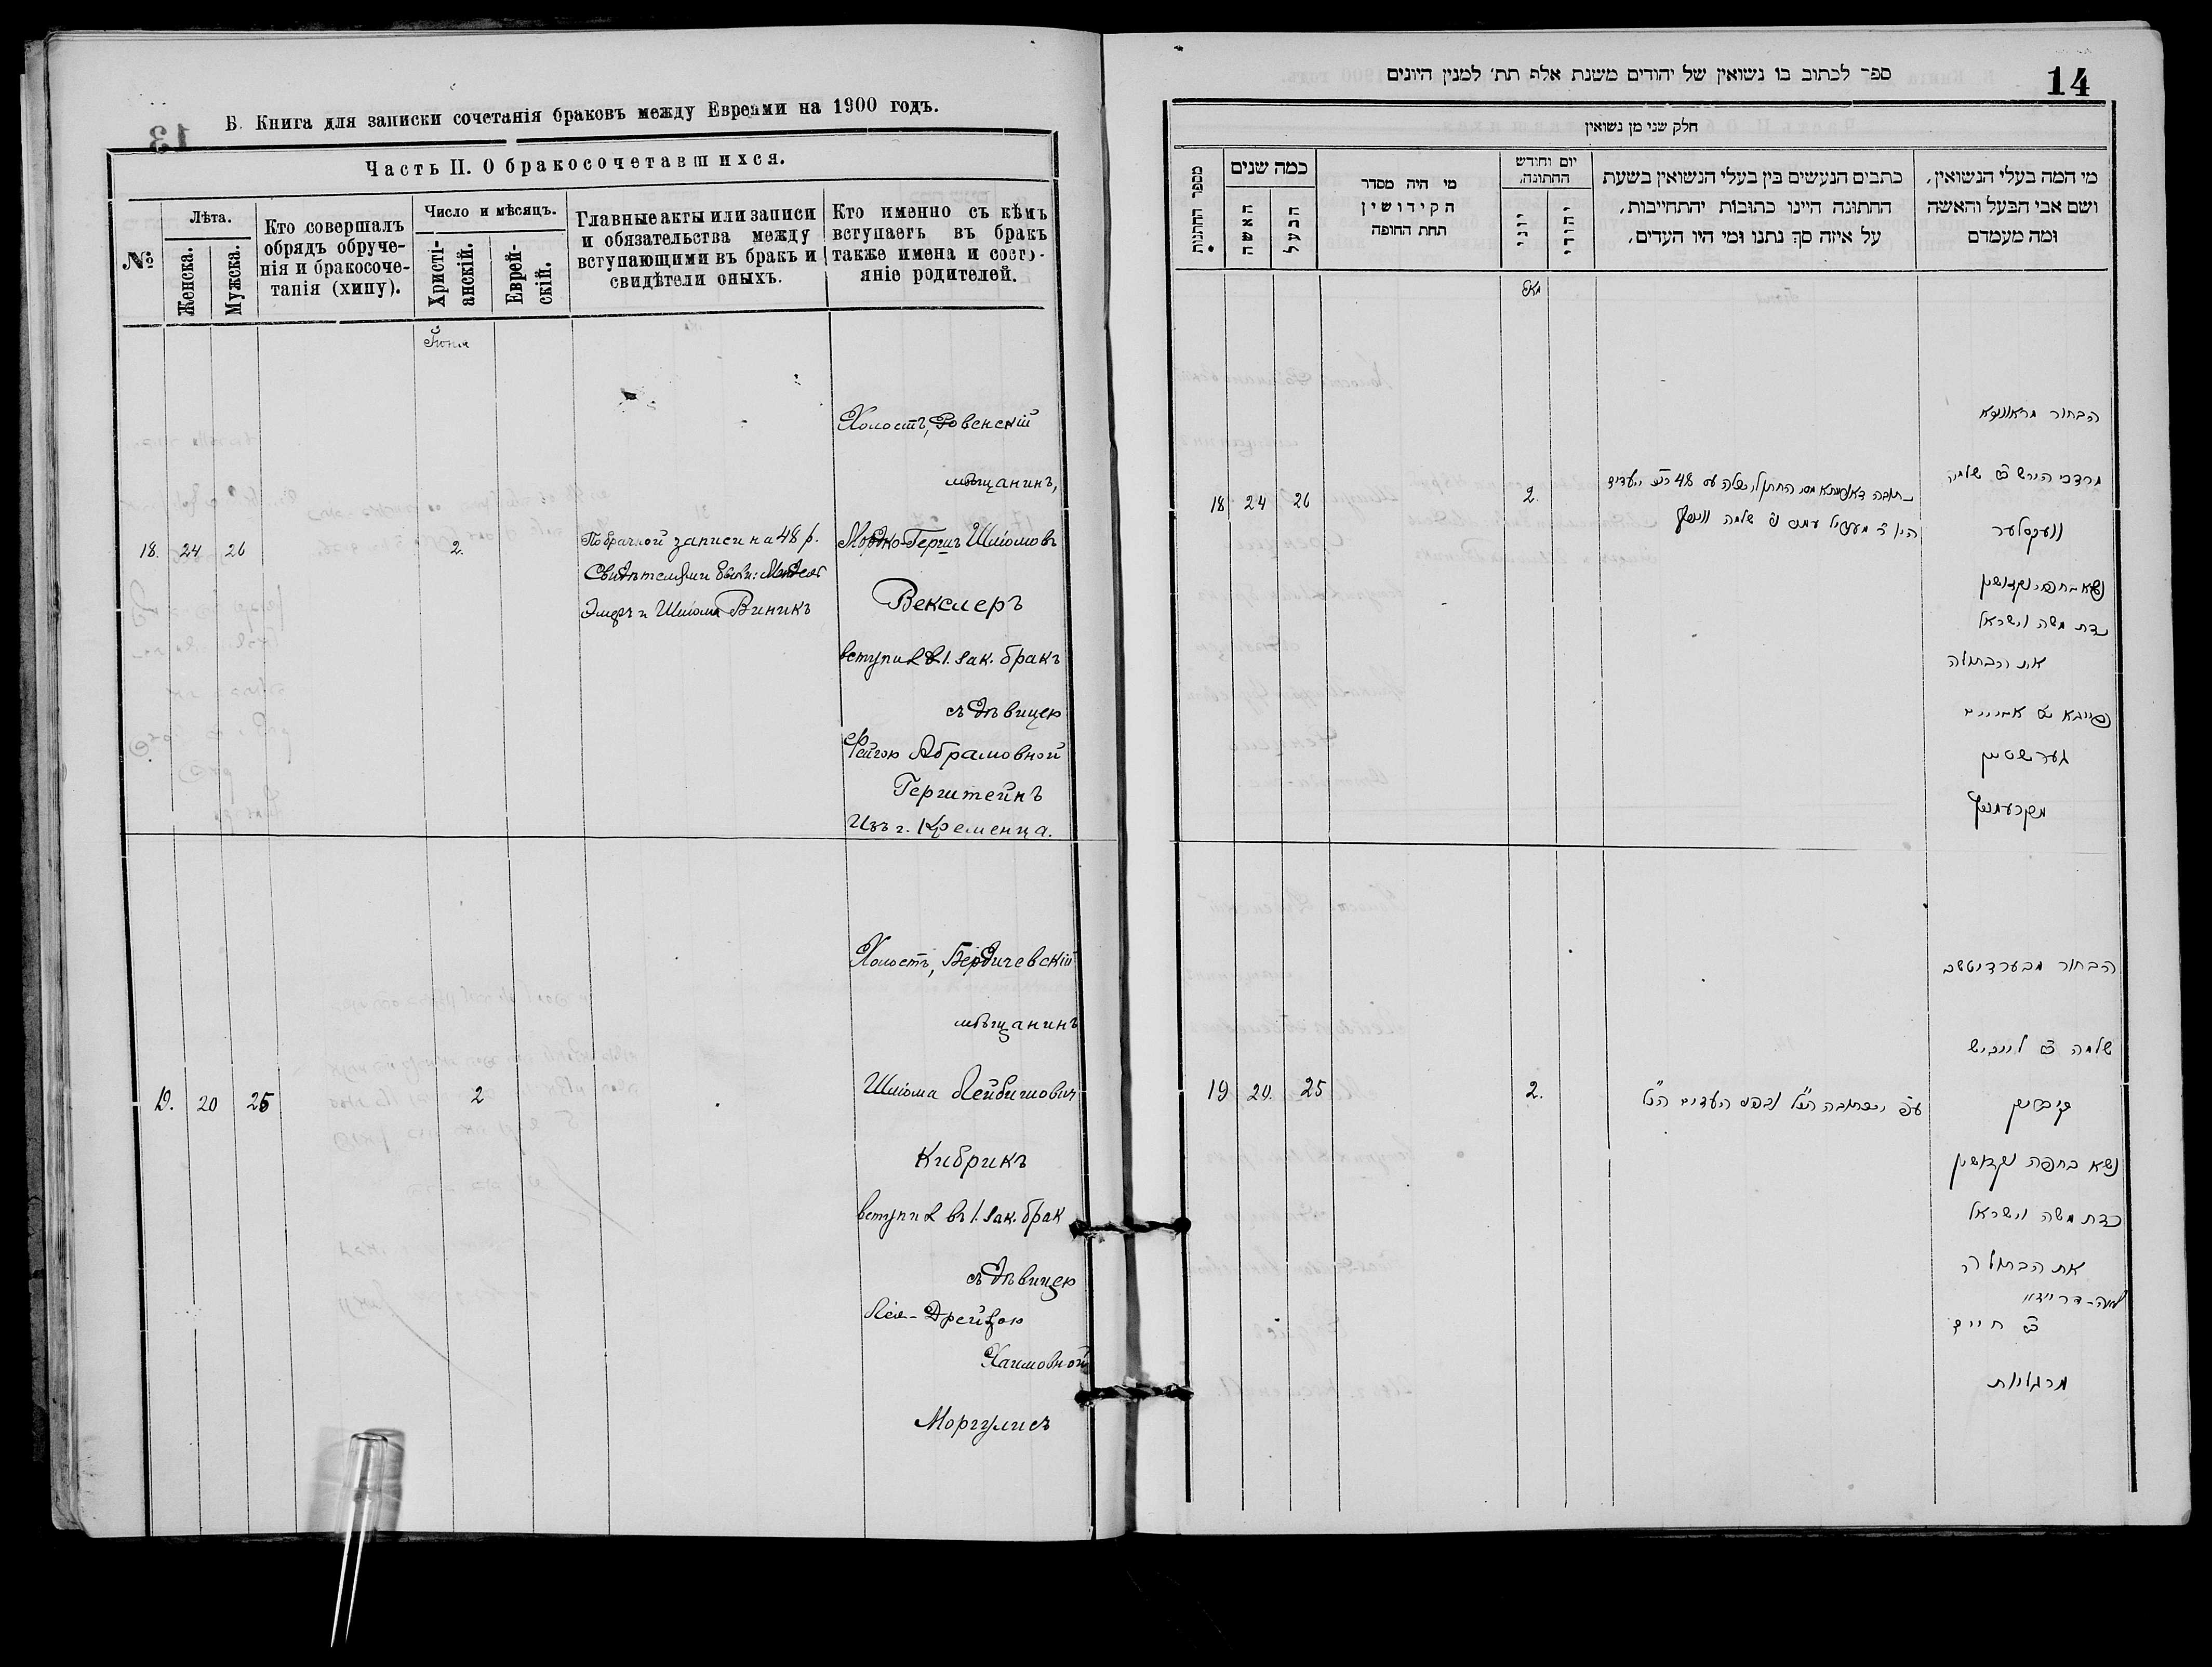 Б. Книга для записки сочетанія браковъ между Евреями на 1900 годъ.
Часть II. О бракосочетавшихся.
№
Лѣта.
Женска.
Мужска.
Кто совершалъ
обрядъ обруче-
нія и бракосоче-
танія (хипу).
Число и мѣсяцъ.
Христі-
анскій.
Еврей-
скій.
Главные акты или записи
и обязательства между
вступающими въ бракъ и
свидѣтели оныхъ.
Кто именно съ кѣмъ
вступаетъ въ бракъ
также имена и состо-
яніе родителей.
Іюня
18. 24 26
2.
По брачной записи на 48 р.
Свидѣтелями были:
и Шліома Виникъ
Холостъ, Ровенскій
мѣщанинъ,
Мордко-Гершъ Шліомовъ
Векслеръ
вступил в 1. зак. бракъ
съ дѣвицею
Фейгою Абрамовной
Герштейнъ
Изъ г. Кременца.
19. 20 25
2
Холостъ, Бердичевскій
мѣщанинъ
Шліома Лейбишович
Кибрикъ
вступил въ 1. зак. брак
съ дѣвицею
Лея-Дрейзою
Хаимовной
Моргулисъ
14
ספר לכתוב בו נשואין של יהודים משנת אלף תת׳ למנין היונים
חלק שני מן נשואין
מספר החתונות
כמה שנים
האשה
הבעל
מי היה מסדר
הקידושין
תחת החופה
יום וחודש
החתונה.
יוני
יהודי
כתבים הנעשים בין בעלי הנשואין בשעת
החתונה היינו כתובות יהתחייבות,
על איזה סך נתנו ומי היו העדים,
מי המה בעלי הנשואין,
ושם אבי הבעל והאשה
ומה מעמדם
18 24 26
2.
הבחור מראוונא
מרדכי הירש ב״ר שלמה
וועקסלער
נשא בחופה וקדושין
כדת משה וישראל
את הבתולה
גערשטיין
19 20. 25
2.
הבחור מבערדיטשב
שלמה ב״ר לייביש
קיבריק
נשא בחפה וקדושין
כדת משה וישראל
את הבתולה
לאה-דרייזי
ב״ר חיים
מרגליות